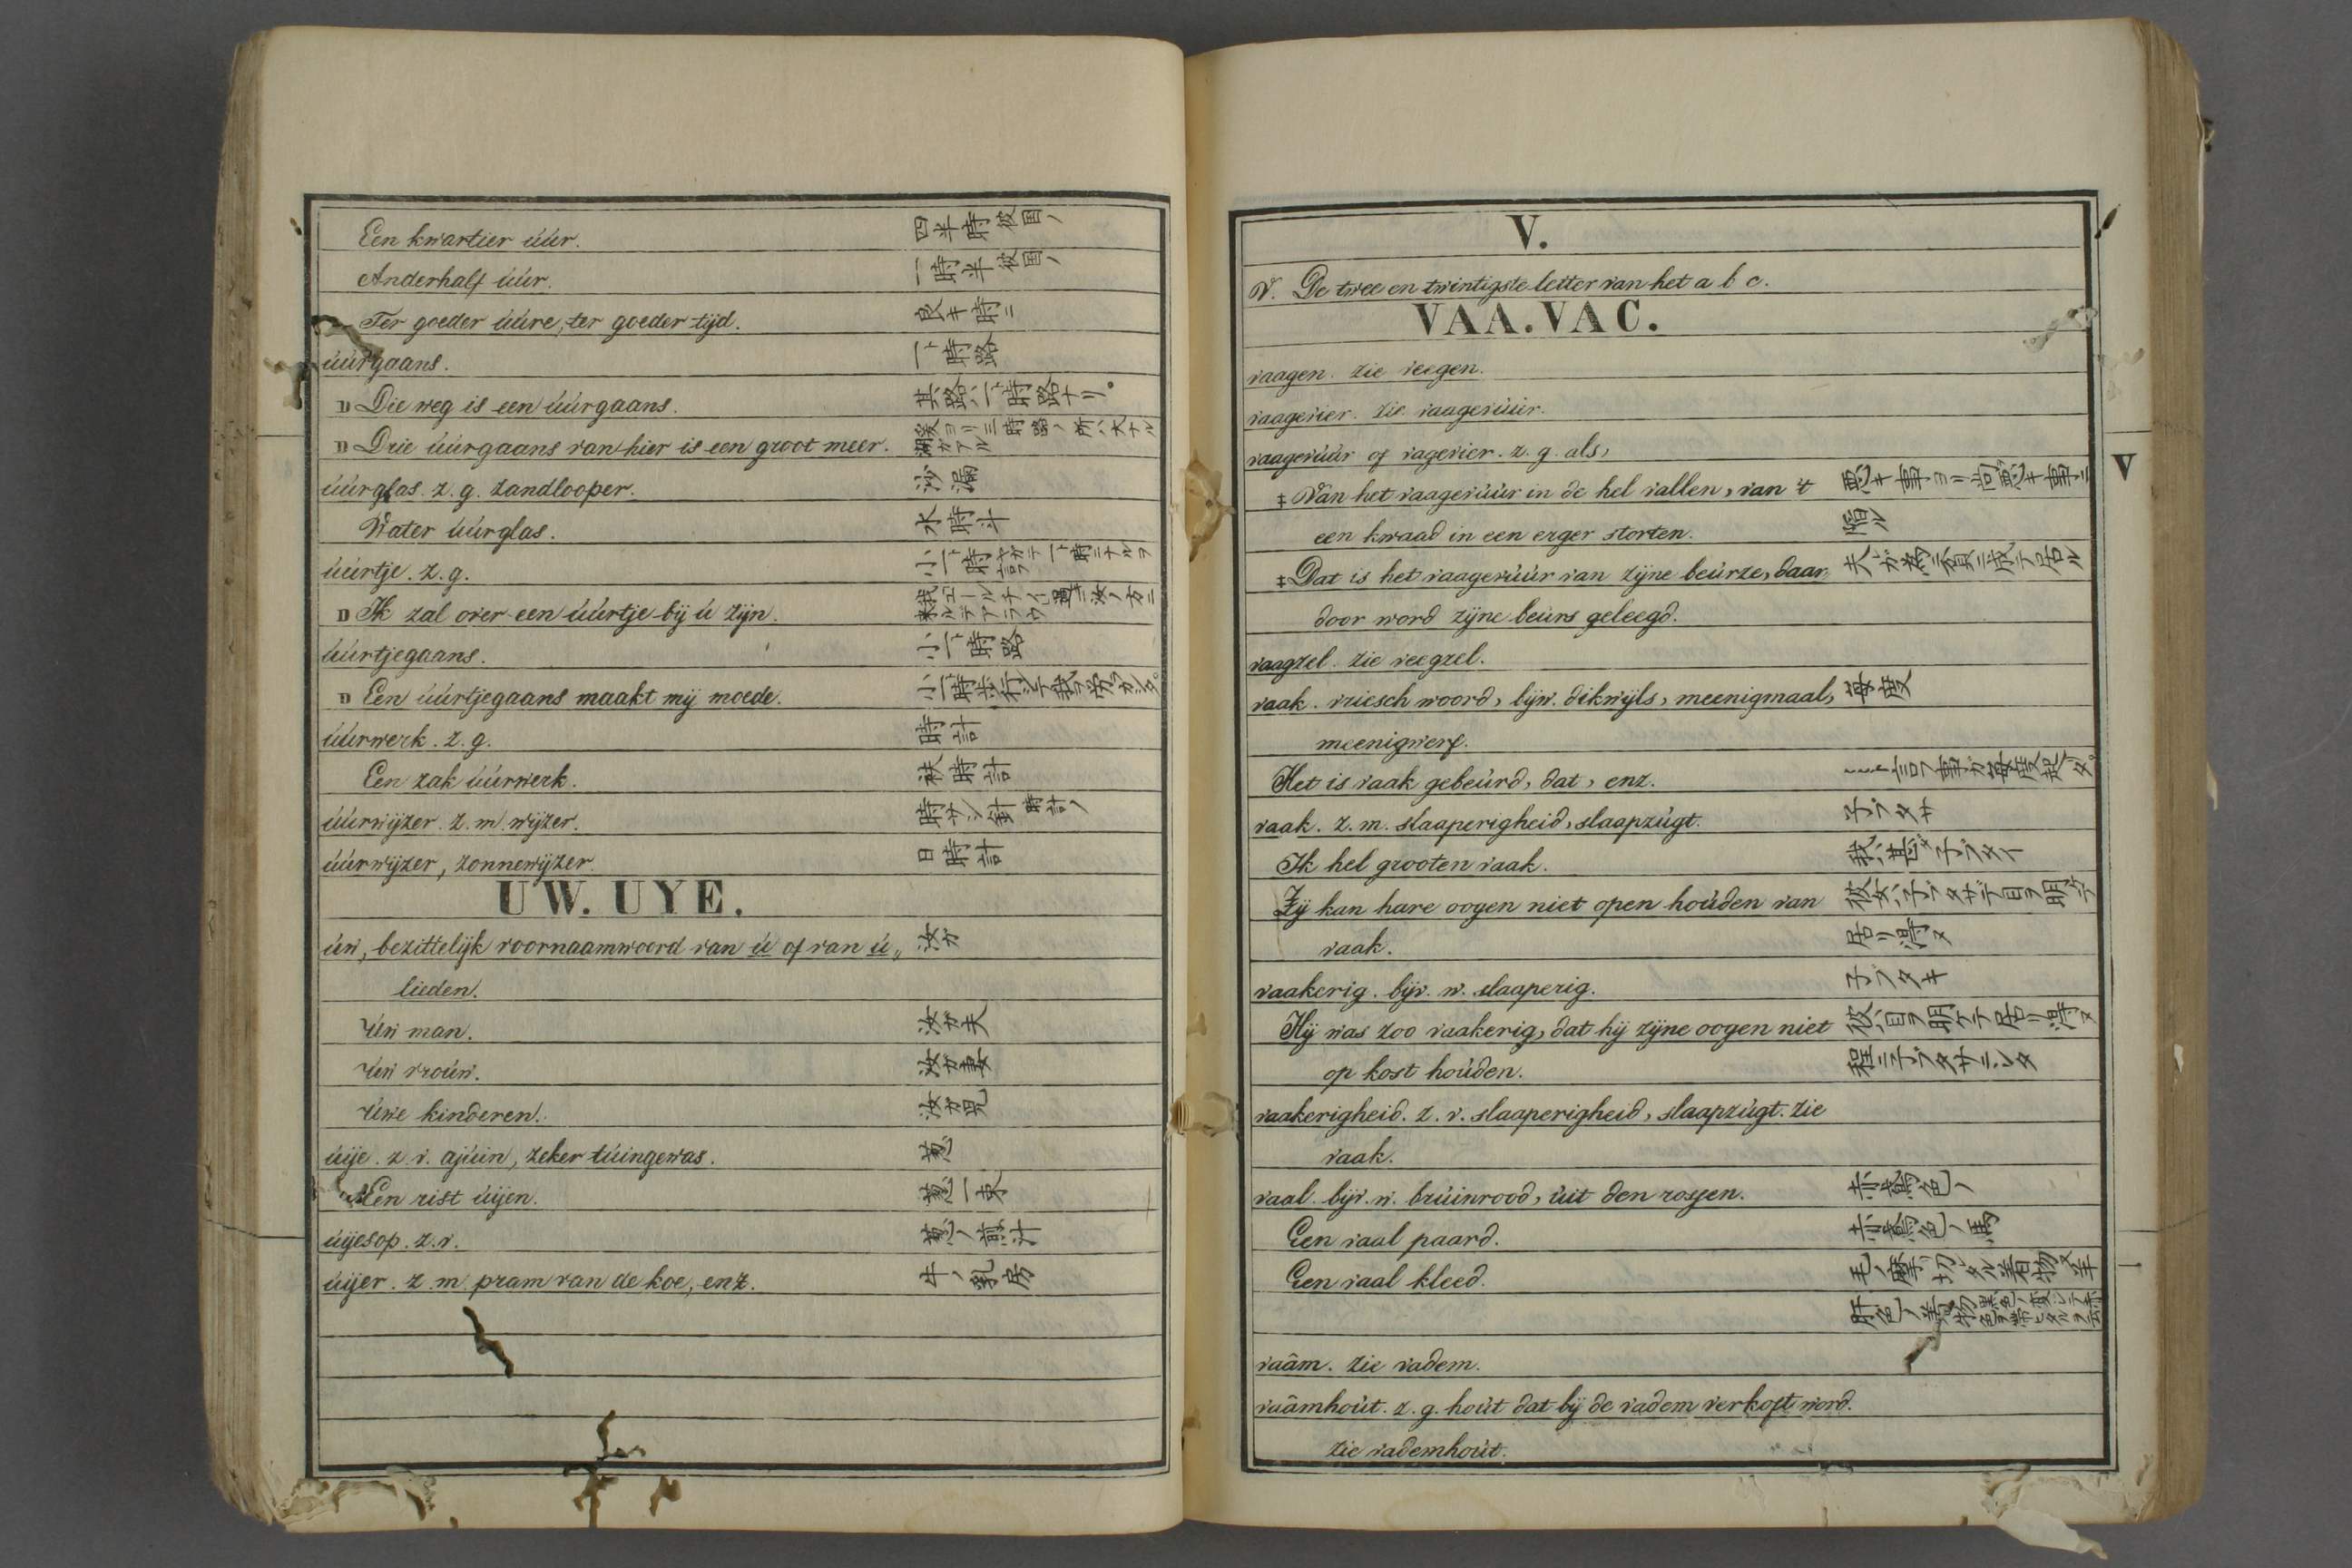 Een kwartier úúr. 四半時 彼国ノ
Anderhalf úúr. 一時半 彼国ノ
Ter goeder úúre, ter goeder tijd. 良キ時ニ
úúrgaans. 一ト時路
D Die weg is een úúrgaans. 其路ハ一ト時路ナリ。
D Drie úúrgaans van hier is een groot meer. 爰ヨリ三時路ノ所ハ大ナル湖ガアル
úúrglas. z. g. zandlooper. 沙漏
Water úúrglas. 水時斗
úúrtje. z. g. 小一ト時
D Ik zal over een úúrtje bij ú zijn.
úúrtjegaans. 小一ト時路
D Een úúrtjegaans maakt mij moede.
úúrwerk. z. g. 時計
Een zak úúrwerk. 袂時計
úúrwijzer. z. m. wijzer. 時サシ針 時計ノ
úúrwijzer, zonnewijzer. 日時計
UW. UYE.
úw, bezittelijk voornaamwoord van ú of van ú„ 汝ガ
lieden.
Úw man. 汝ガ夫
Úw vroúw. 汝ガ妻
Úwe kinderen. 汝ガ児
úije. z. v. ajúin, zeker túingewas. 葱
Een rist úijen. 葱一束
úijesop. z. v. 葱ノ煎汁
úijer. z. m. pram van de koe, enz. 牛ノ乳房
V.
V. De twee en twintigste letter van het a b c.
VAA. VAC.
vaagen. zie veegen.
vaagevier. zie vaagevúúr.
vaagevúúr of vagevier. z. g. als,
‡ Van het vaagevúúr in de hel vallen, van 't 悪キ事ヨリ尚悪キ事ニ
een kwaad in een erger storten. 陷ル
‡ Dat is het vaagevúúr van zijne beúrze, daar„ 夫ガ為ニ貧ニ成テ居ル
door word zijne beúrs geleegd.
vaagzel. zie veegzel.
vaak. vriesch woord, bijw. dikwijls, meenigmaal, 毎度
meenigwerf.
Het is vaak gebeúrd, dat, enz. 言フ事ガ毎度起ツタ
vaak. z. m. slaaperigheid, slaapzúgt. 子ブタサ
Ik heb grooten vaak. 我ハ甚ダ子ブタイ
Zij kan hare oogen niet open hoúden van 彼女ハ子ブタサデ目ヲ明ケテ
vaak. 居リ得ヌ
vaakerig. bijv. w. slaaperig. 子ブタキ
Hij was zoo vaakerig, dat hij zijne oogen niet 彼ハ目ヲ明ケテ居リ得ヌ
op kost hoúden. 程ニ子ブタサニシタ
vaakerigheid. z. v. slaaperigheid, slaapzúgt. zie
vaak.
vaal. bijv. w. brúinrood, úit den rossen. 赤鳶色ノ
Een vaal paard. 赤鳶色ノ馬
Een vaal kleed. 毛ノ摩切レタル着物又羊
肝色ノ着物
vaâm. zie vadem.
vaâmhoút. z. g. hoút dat bij de vadem verkoft word.
zie vademhoút.
V